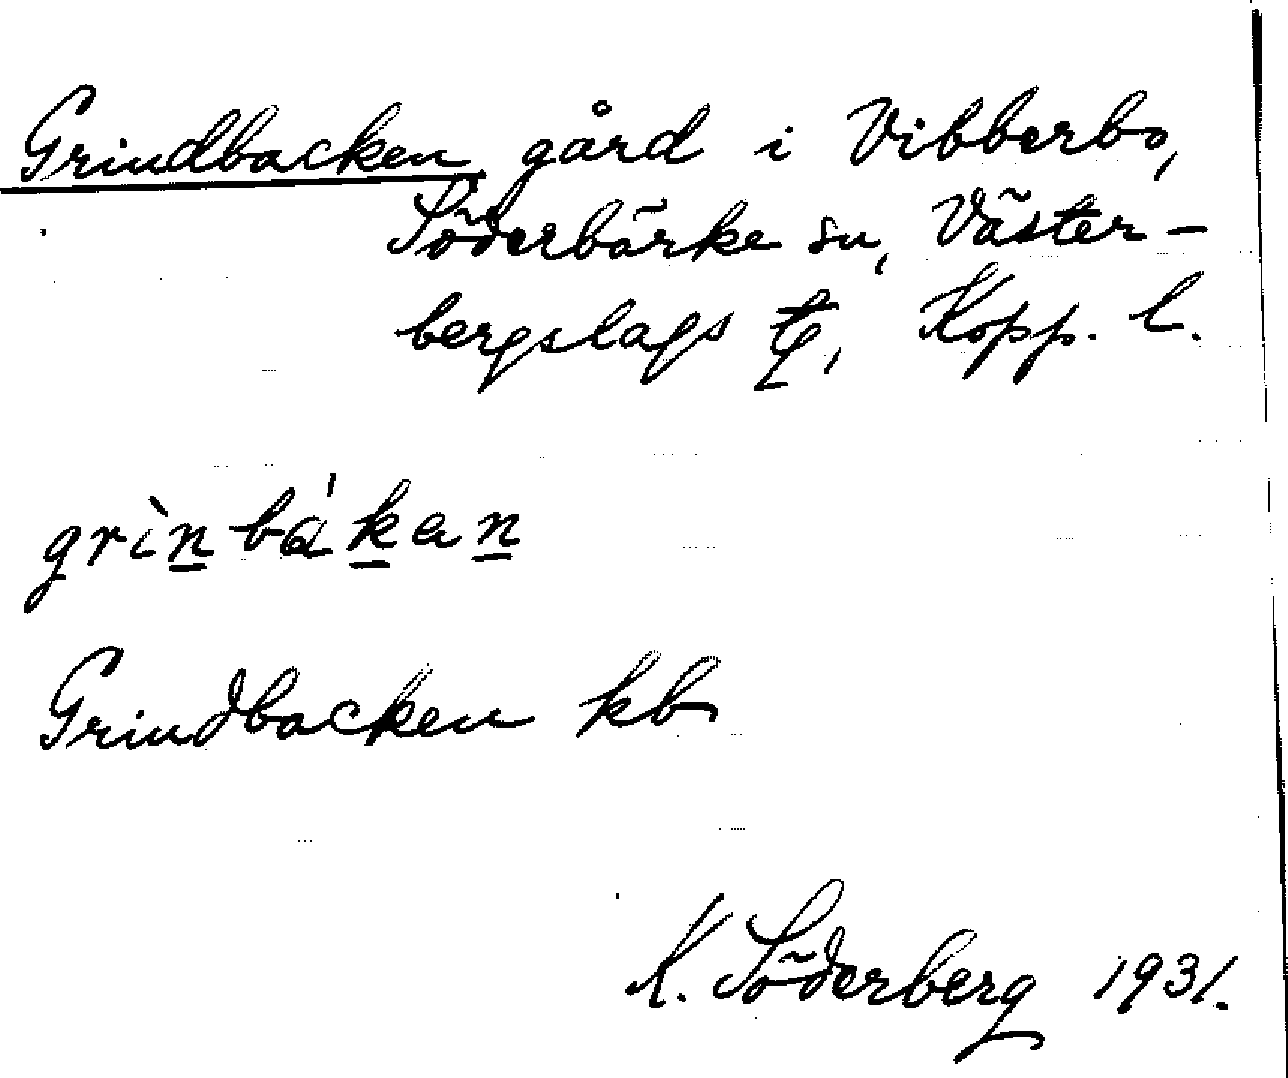 Grindbacken gård i Vibberbo,
Söderbärke sn, Väster-
bergslags tg, Kopp. l.
grìnbákan
Grindbacken kb
K. Söderberg 1931.